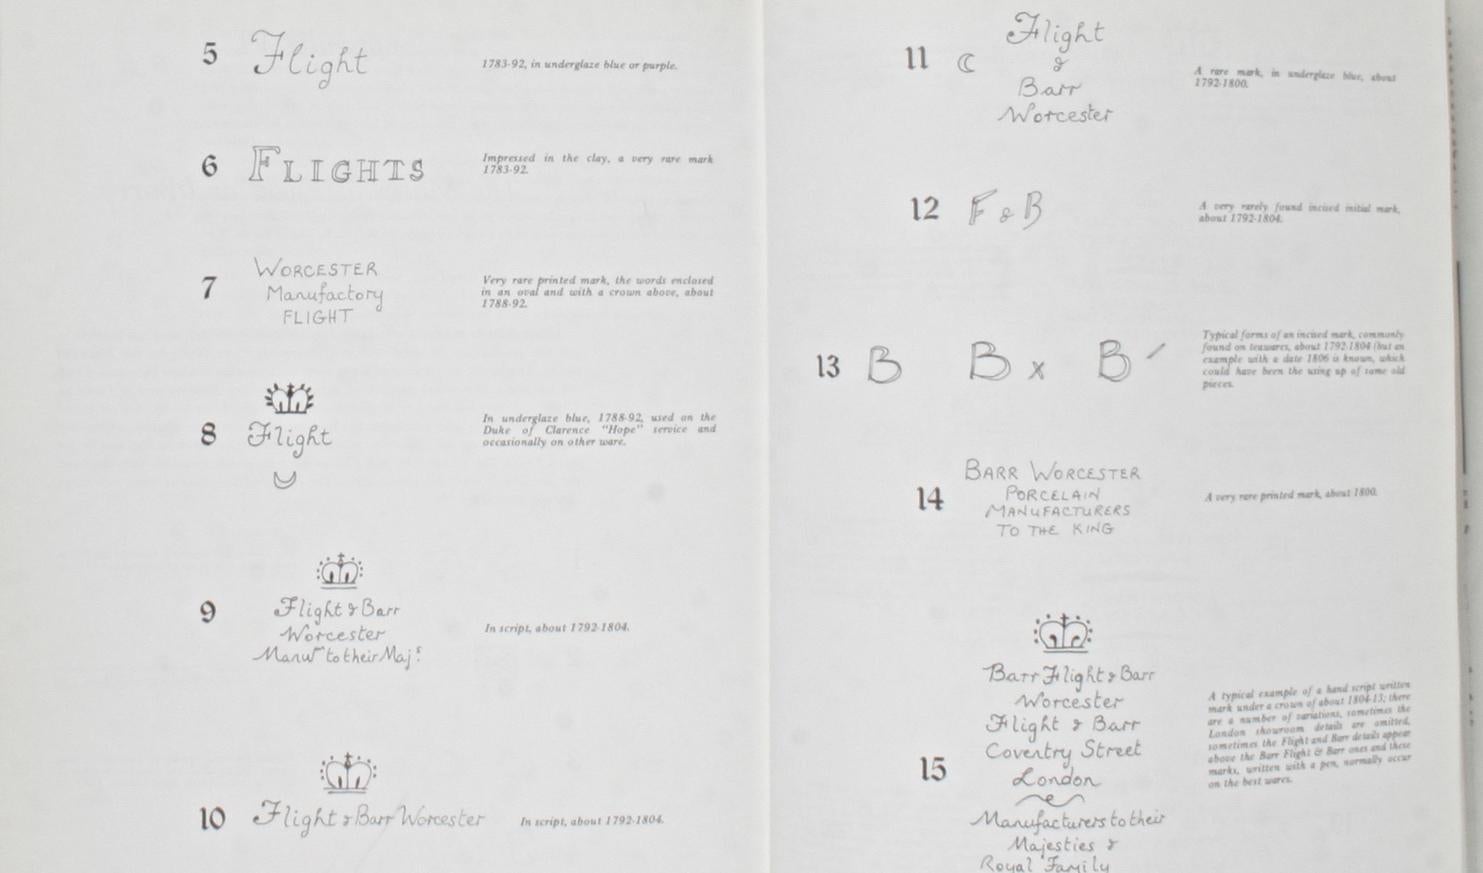 5
Flight
1783-92, in underglaze blue or purple.
6
FLIGHTS
Impressed in the clay, a very rare mark
1783-92.
7
WORCESTER
Manufactory
FLIGHT
Very rare printed mark, the words enclosed
in an oval and with a crown above, about
1788-92.
8
Flight
In underglaze blue, 1788-92, used on the
Duke of Clarence "Hope" service and
occasionally on other ware.
9
Flight & Barr
Worcester
Manurs to their Majs
In script, about 1792-1804.
10
Flight & Barr Worcester
In script, about 1792-1804.
11
Flight
&
Barr
Worcester
A rare mark, in underglaze blue, about
1792-1800.
12
F & B
A very rarely found incised initial mark,
about 1792-1804.
13
B B x B
Typical forms of an incised mark, commonly
found on teawares, about 1792-1804 (but an
example with a date 1806 is known, which
could have been the using up of some old
pieces.
14
BARR WORCESTER
PORCELAIN
MANUFACTURERS
TO THE KING
A very rare printed mark, about 1800.
15
Barr Flight & Barr
Worcester
Flight & Barr
Coventry Street
London
Manufacturers to their
Majesties &
Royal Family
A typical example of a hand script written
mark under a crown of about 1804-13; there
are a number of variations, sometimes the
London showroom details are omitted,
sometimes the Flight and Barr details appear
above the Barr Flight & Barr ones and these
marks, written with a pen, normally occur
on the best wares.